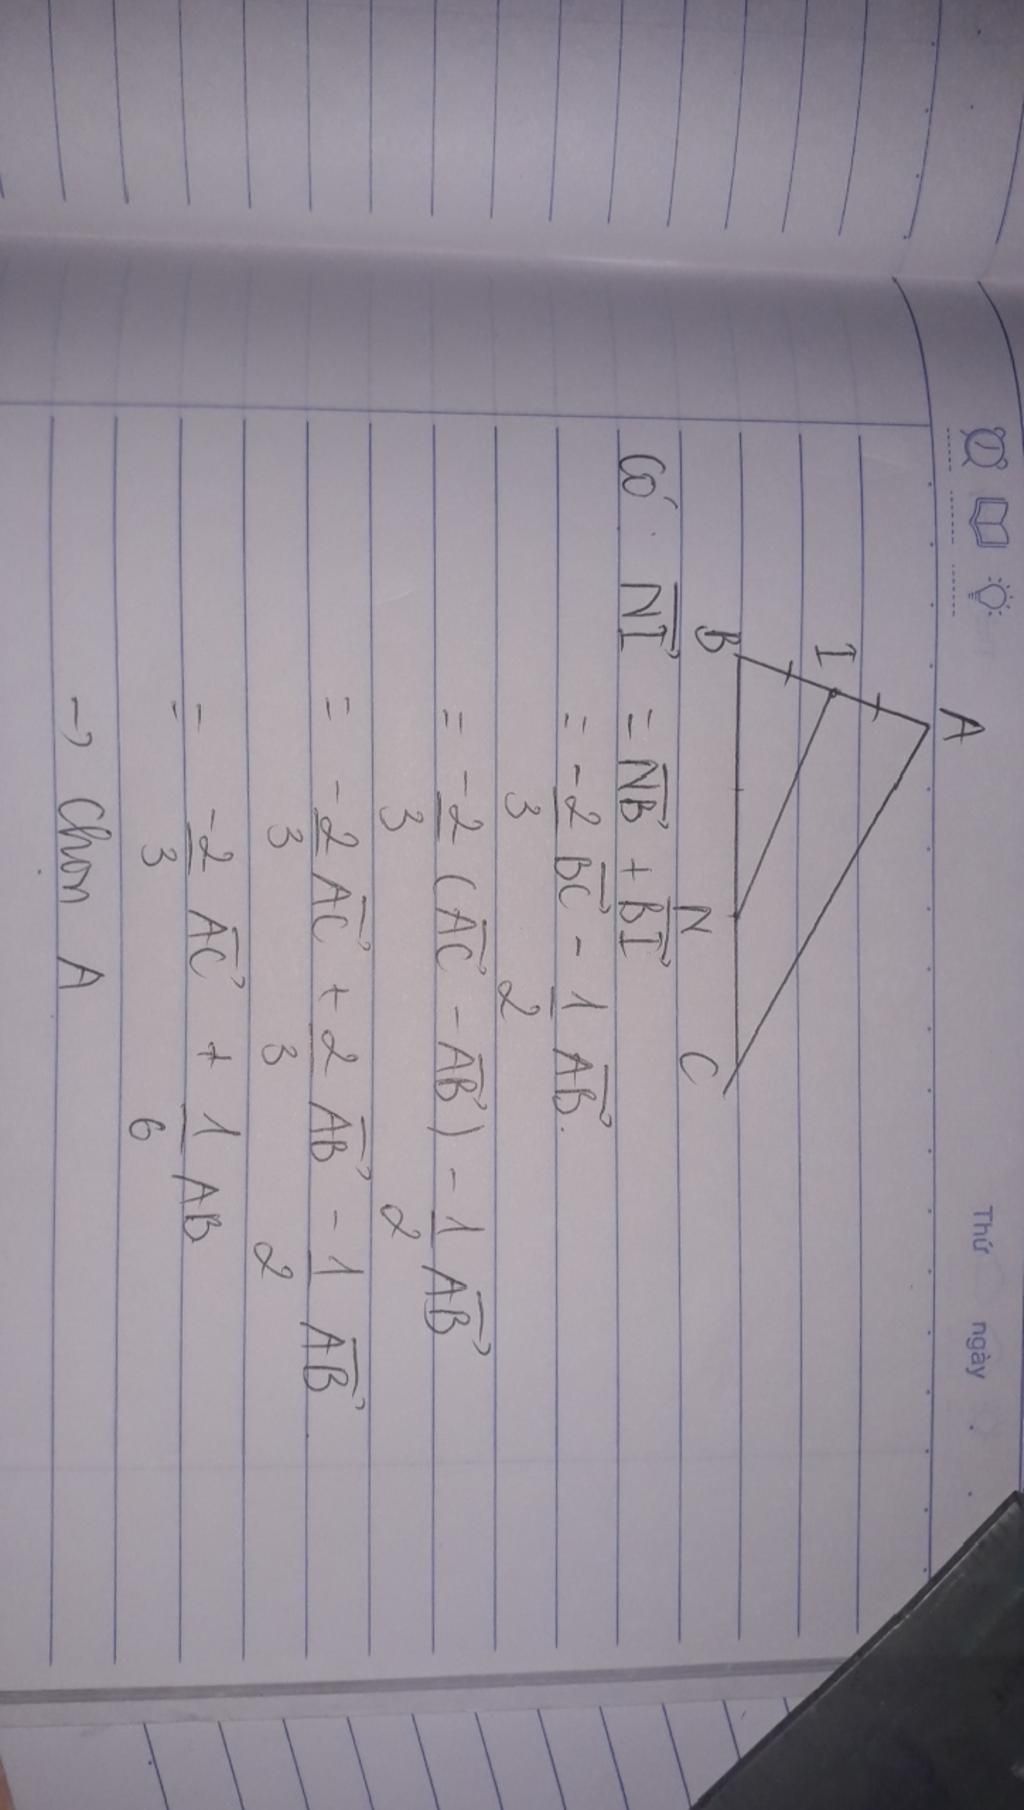 Thứ ngày
A
I
B N C
Có \overrightarrow{NI} = \overrightarrow{NB} + \overrightarrow{BI}
= \frac{-2}{3} \overrightarrow{BC} - \frac{1}{2} \overrightarrow{AB}.
= \frac{-2}{3} (\overrightarrow{AC} - \overrightarrow{AB}) - \frac{1}{2} \overrightarrow{AB}
= \frac{-2}{3} \overrightarrow{AC} + \frac{2}{3} \overrightarrow{AB} - \frac{1}{2} \overrightarrow{AB}
= \frac{-2}{3} \overrightarrow{AC} + \frac{1}{6} AB
→ Chọn A